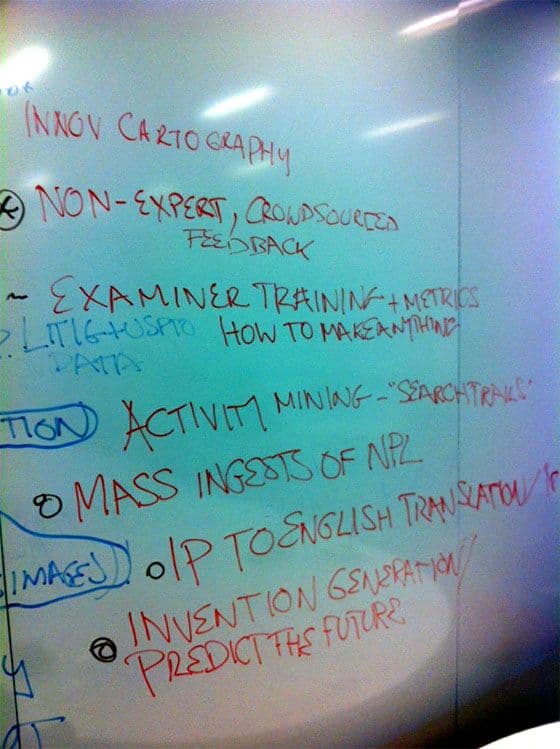 INNOV CARTOGRAPHY
NON-EXPERT, CROWDSOURCED
FEEDBACK
~ EXAMINER TRAINING + METRICS
LITIG + USPTO HOW TO MAKE ANYTHING
DATA
TION ACTIVITY MINING - "SEARCHTRAILS"
MASS INGESTS OF NPL
IP TO ENGLISH TRANSLATION/
IMAGES
INVENTION GENERATION/
PREDICT THE FUTURE
y